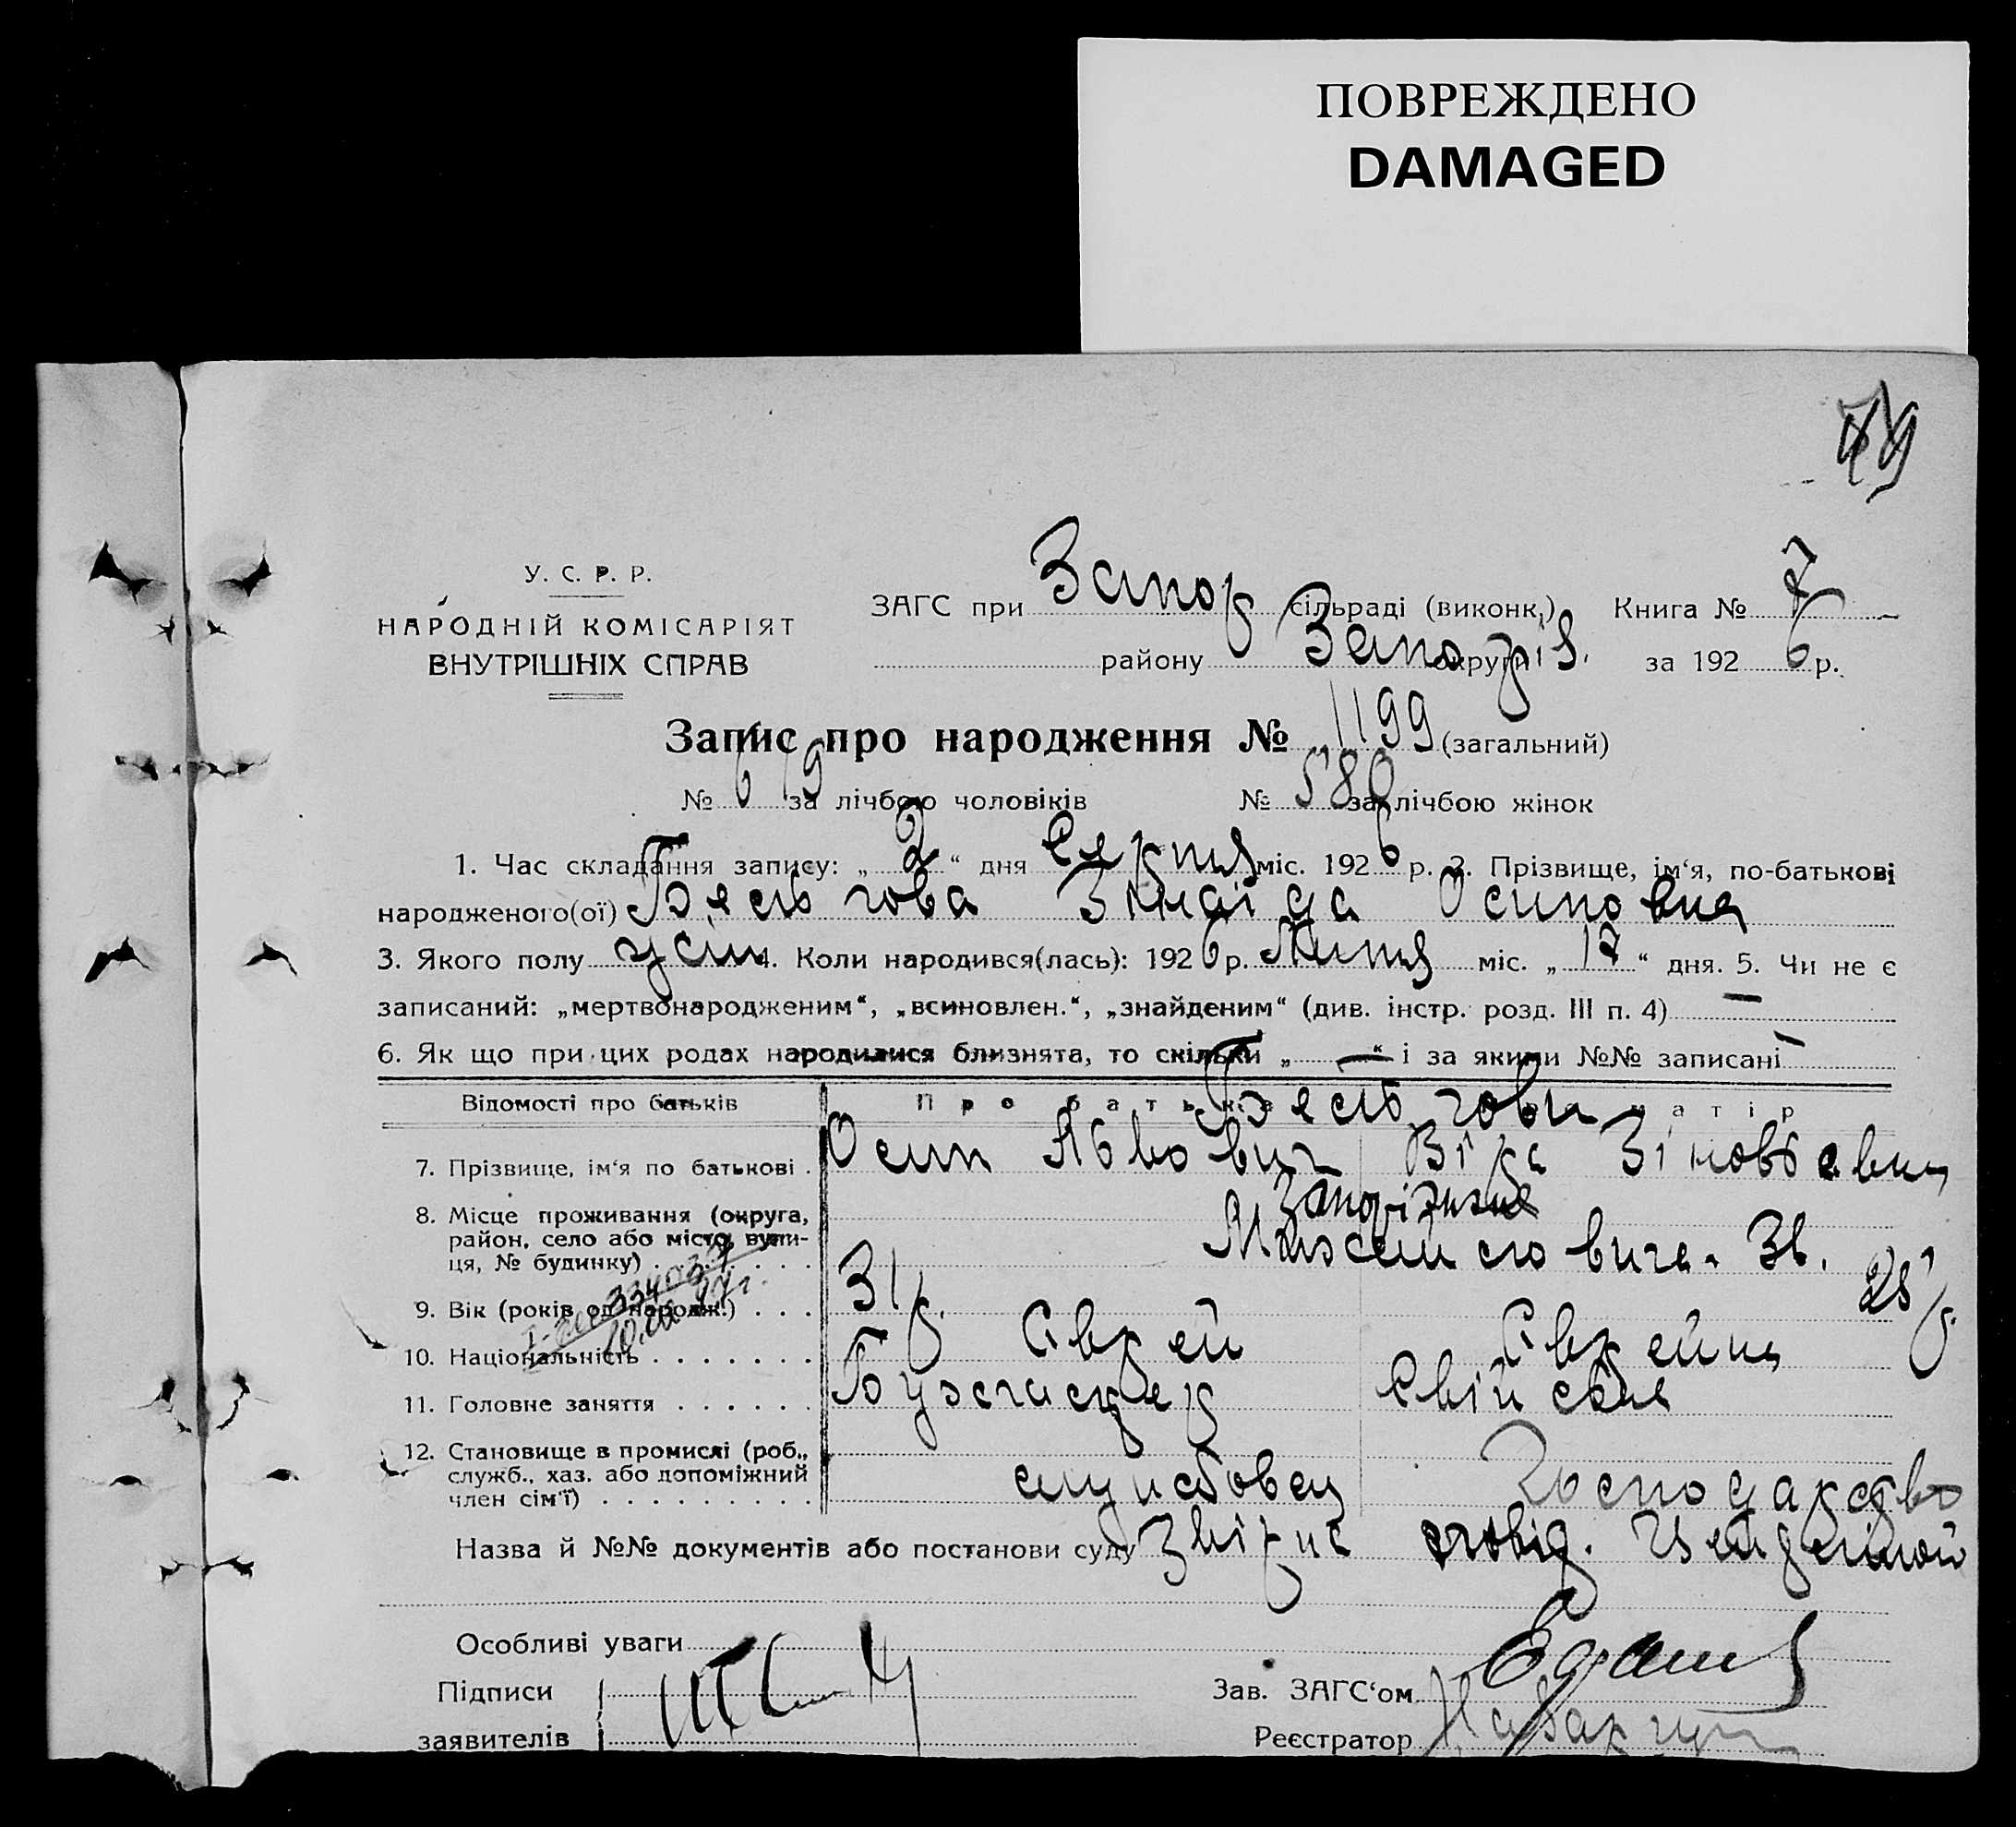 ПОВРЕЖДЕНО
DAMAGED
49
У. С. Р. Р.
НАРОДНІЙ КОМІСАРІЯТ
ВНУТРІШНІХ СПРАВ
ЗАГС при Запор сільраді (виконк.) Книга № 7
району Запоріз. округи за 1926 р.
Запис про народження № 1199 (загальний)
№ 619 за лічбою чоловіків № 580 за лічбою жінок
1. Час складання запису: „2“ дня Серпня міс. 1926 р. 2. Прізвище, ім‘я, по-батькові
народженого(ої) Зінаіда Осиповна
3. Якого полу жін 4. Коли народився(лась): 1926 р. Липня міс. „17“ дня. 5. Чи не є
записаний: „мертвонародженим“, „всиновлен.“, „знайденим“ (див. інстр. розд. III п. 4) —
6. Як що при цих родах народилися близнята, то скільки „—“ і за якими №№ записані —
Відомості про батьків Про батька матір
7. Прізвище, ім‘я по батькові . Осип Львович Віра Зіновьевна
8. Місце проживання (округа, Запоріжжя
район, село або місто, вули-
ця, № будинку) . . . . . .
9. Вік (років од народж.) . . . 31 р. 28 р.
10. Національність . . . . . . . Єврей Єврейка
11. Головне заняття . . . . . . Бухгалтер Свійське
12. Становище в промислі (роб.,
служб., хаз. або допоміжний службовец Господарство
член сім‘ї) . . . . . . . . .
Назва й №№ документів або постанови суду
Особливі уваги
Підписи
заявителів
Зав. ЗАГС‘ом
Реєстратор